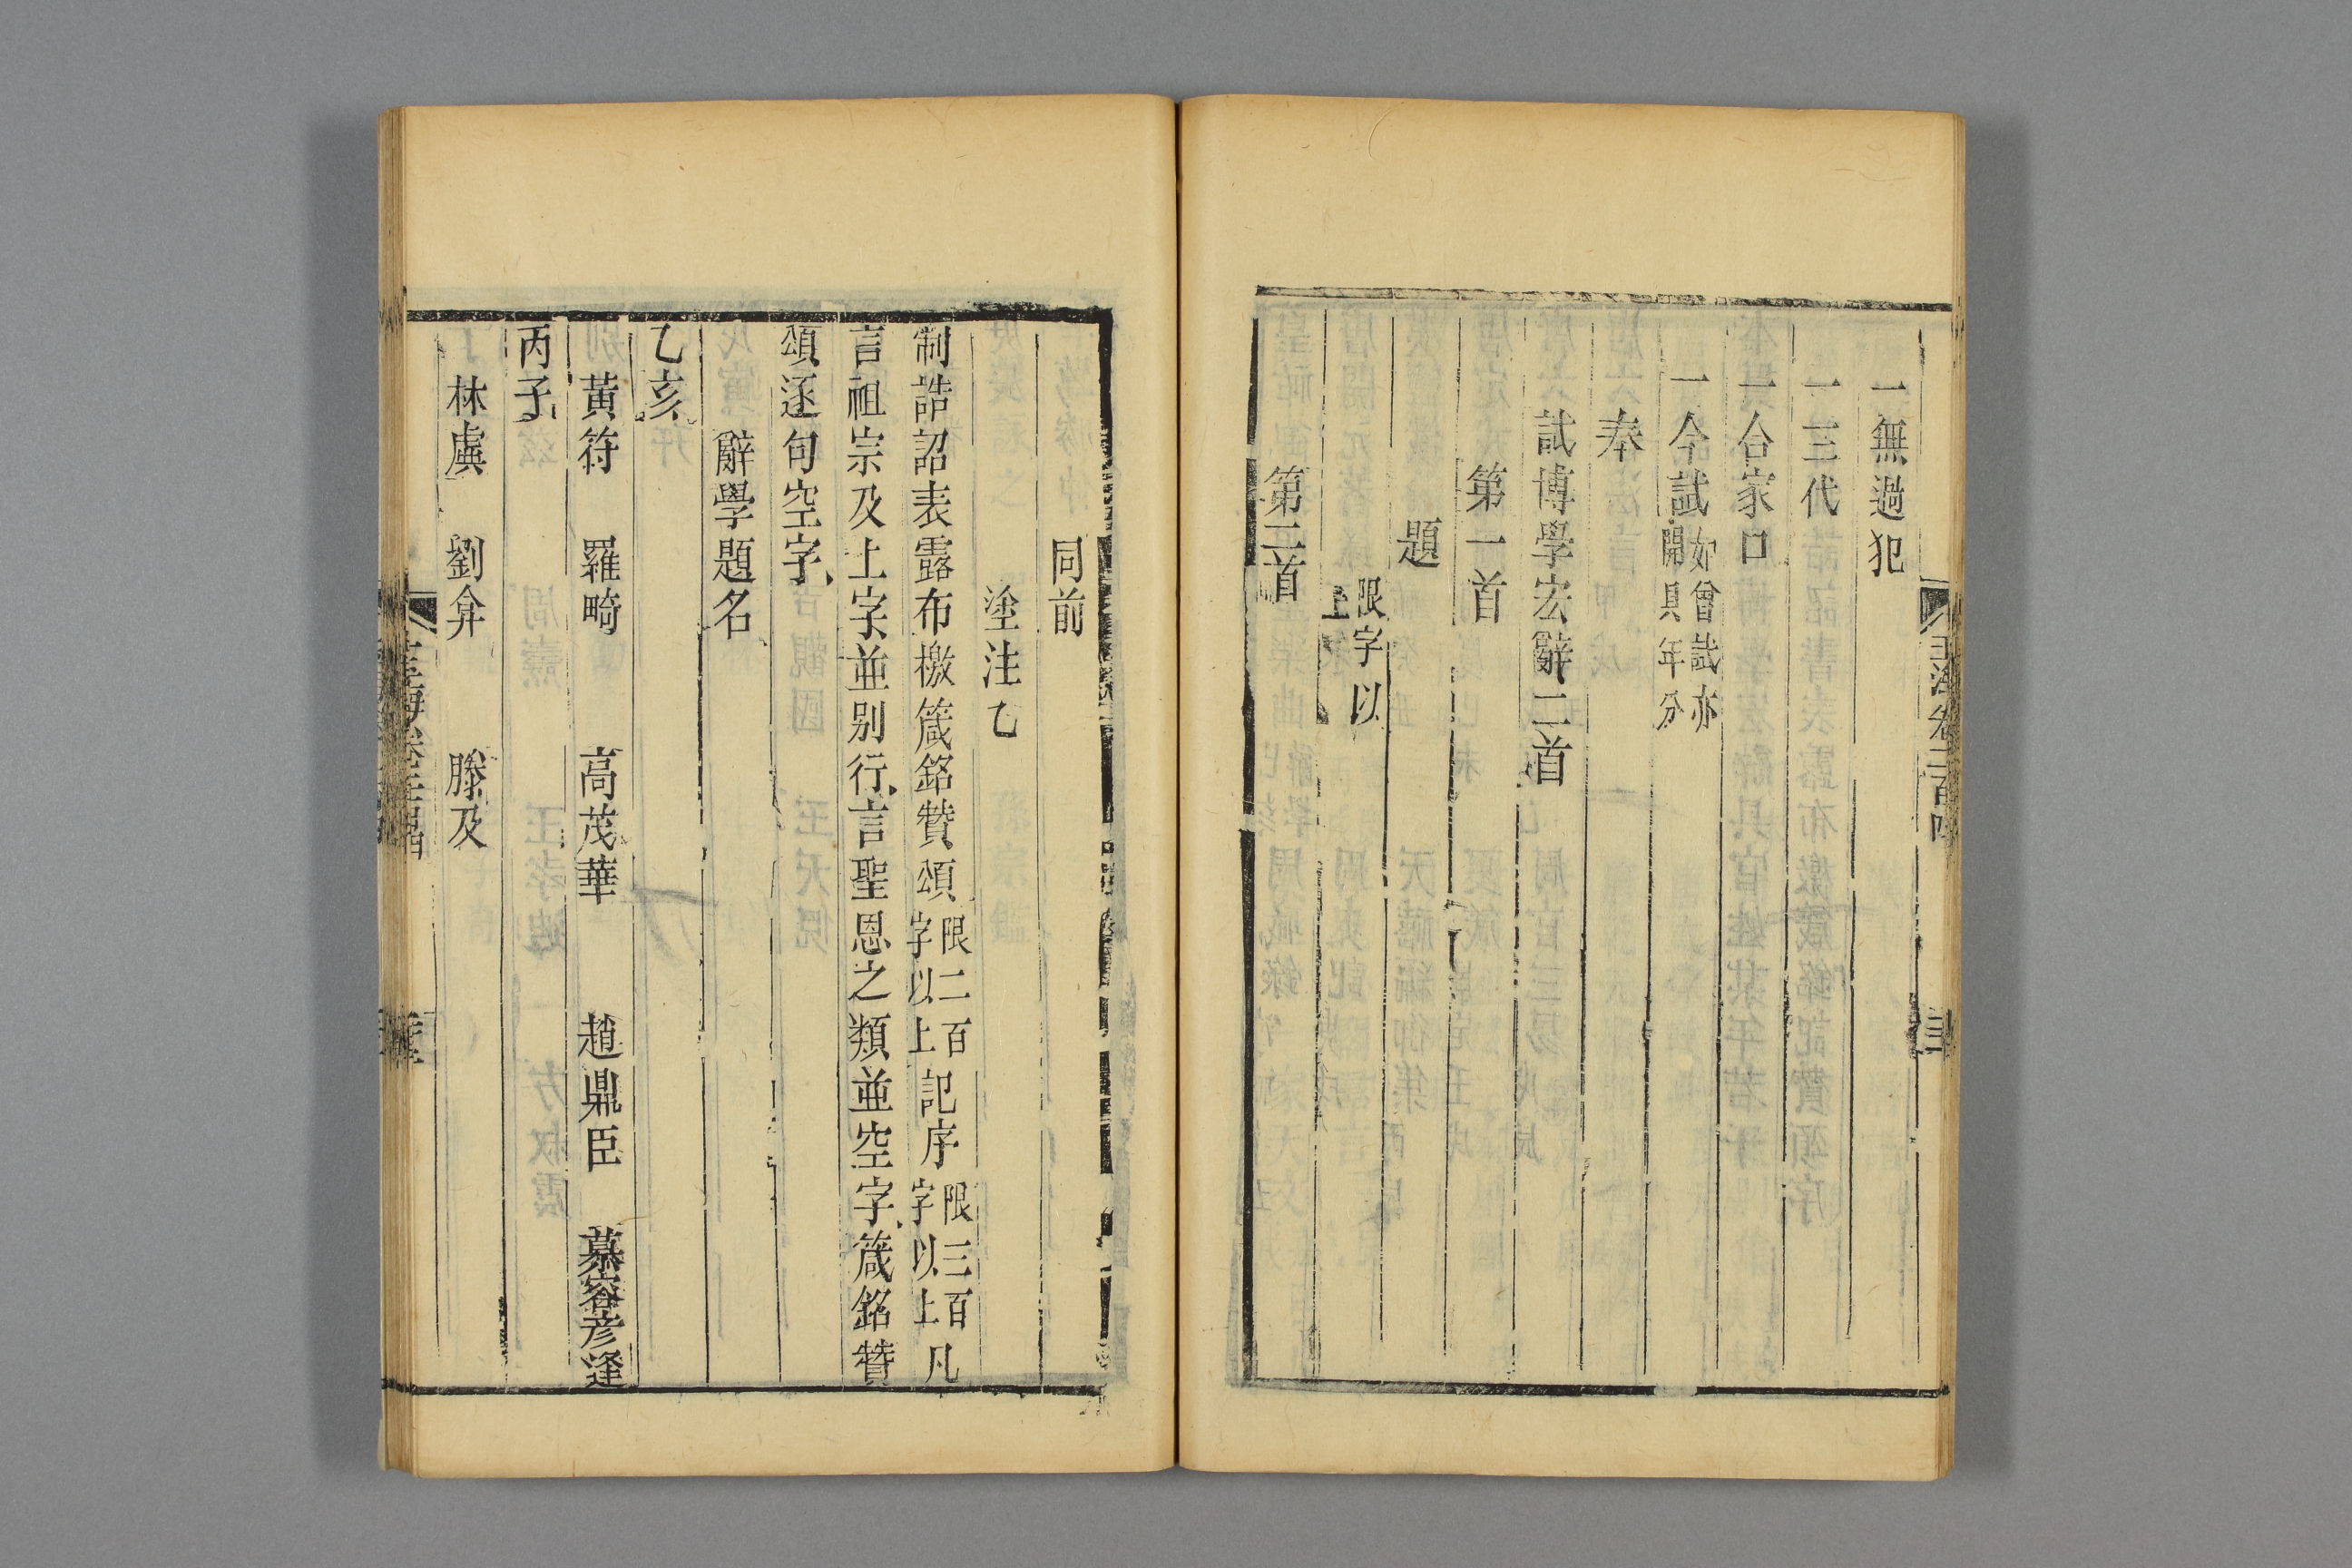 一無過犯
一三代
一合家口
一今試如曾試亦開具年分
奉
試博學宏辭二首
第一首
題
限字以上
第二首
同前
塗注乙
制誥詔表露布檄箴銘贊頌限二百字以上記序限三百字以上凡
言祖宗及上字並别行言聖恩之類並空字箴銘贊
頌逐句空字
辭學題名
乙亥
黃符　羅畸　高茂華　趙鼎臣　慕容彥逢
丙子
林虞　劉弇　滕及